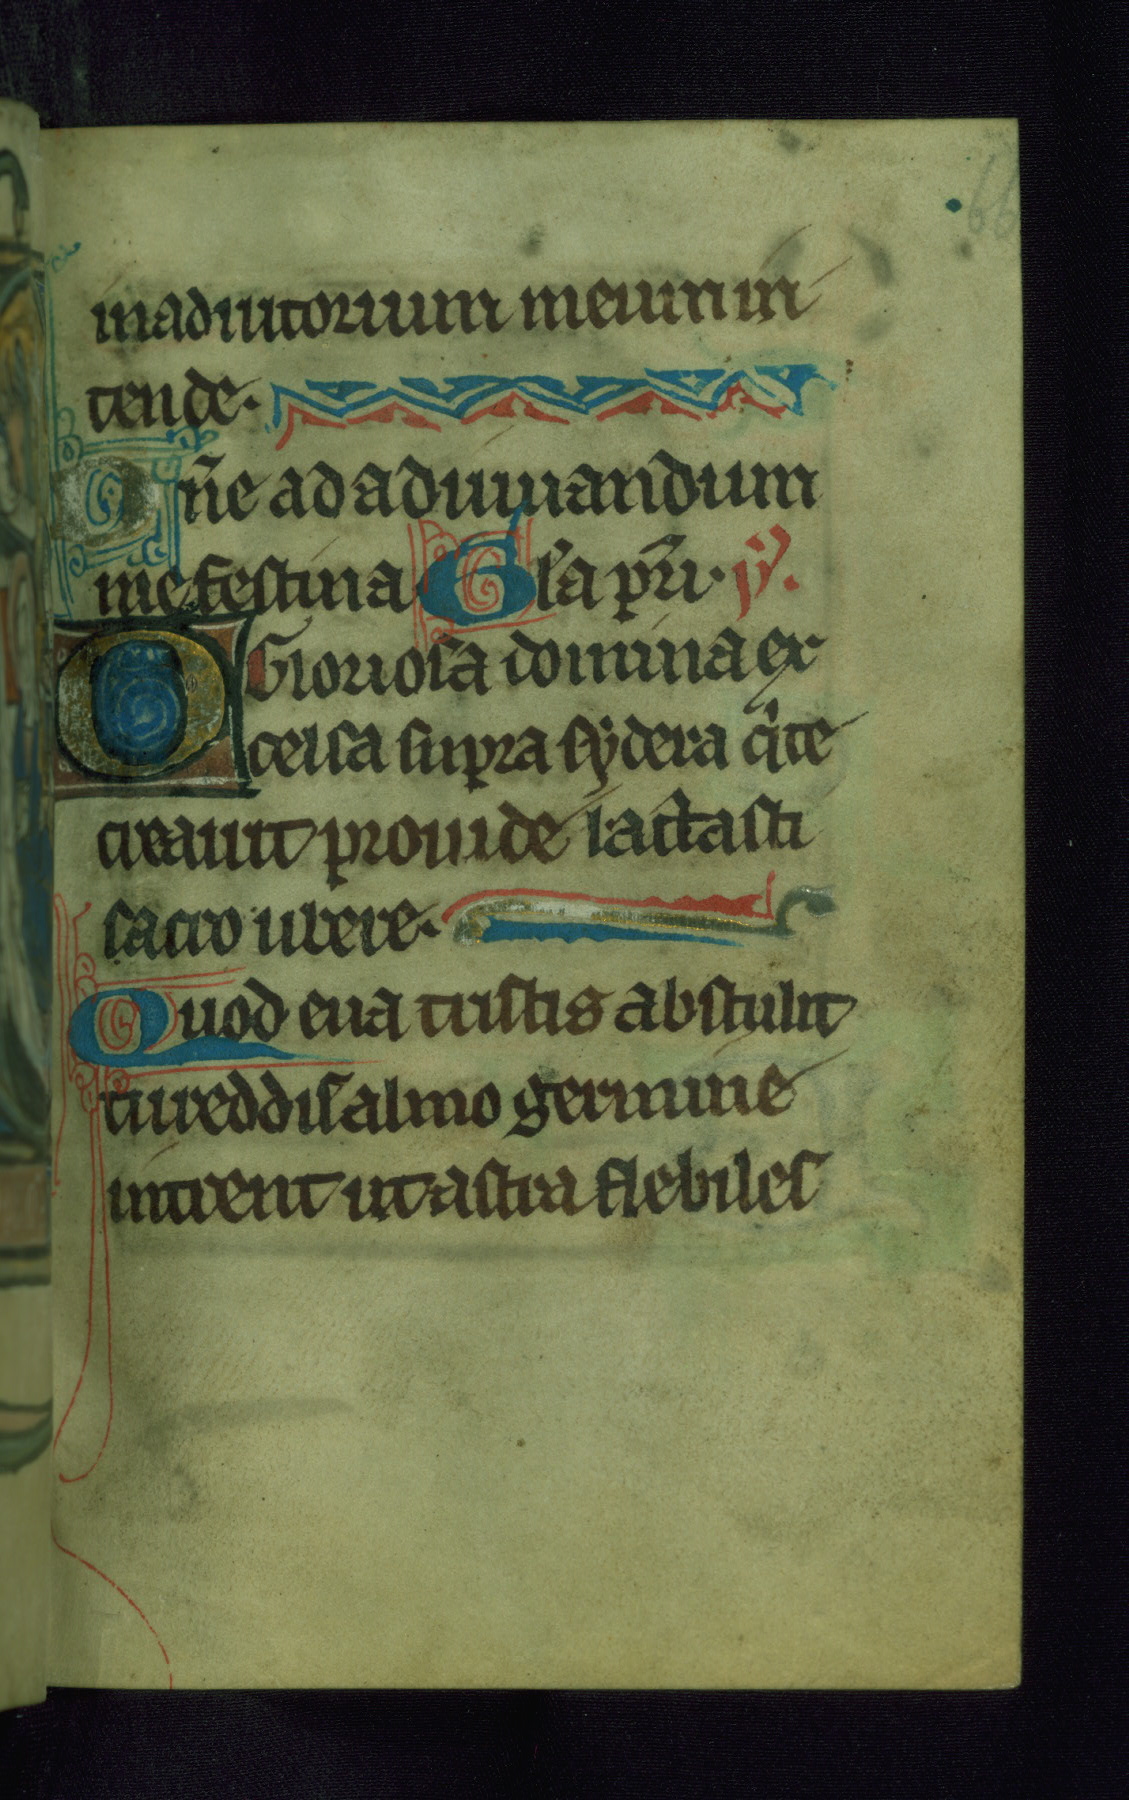 66
in adiutorium meum in
tende.
Dn̄e ad adiuuandum
me festina Gl'a pr̄i. ỹ.
O Gloriosa domina ex
celsa supra sydera q̇ te
creauit prouide lactasti
sacro ubere.
Quod eua tristis abstulit
tu reddis almo germine
intrent ut astra flebiles